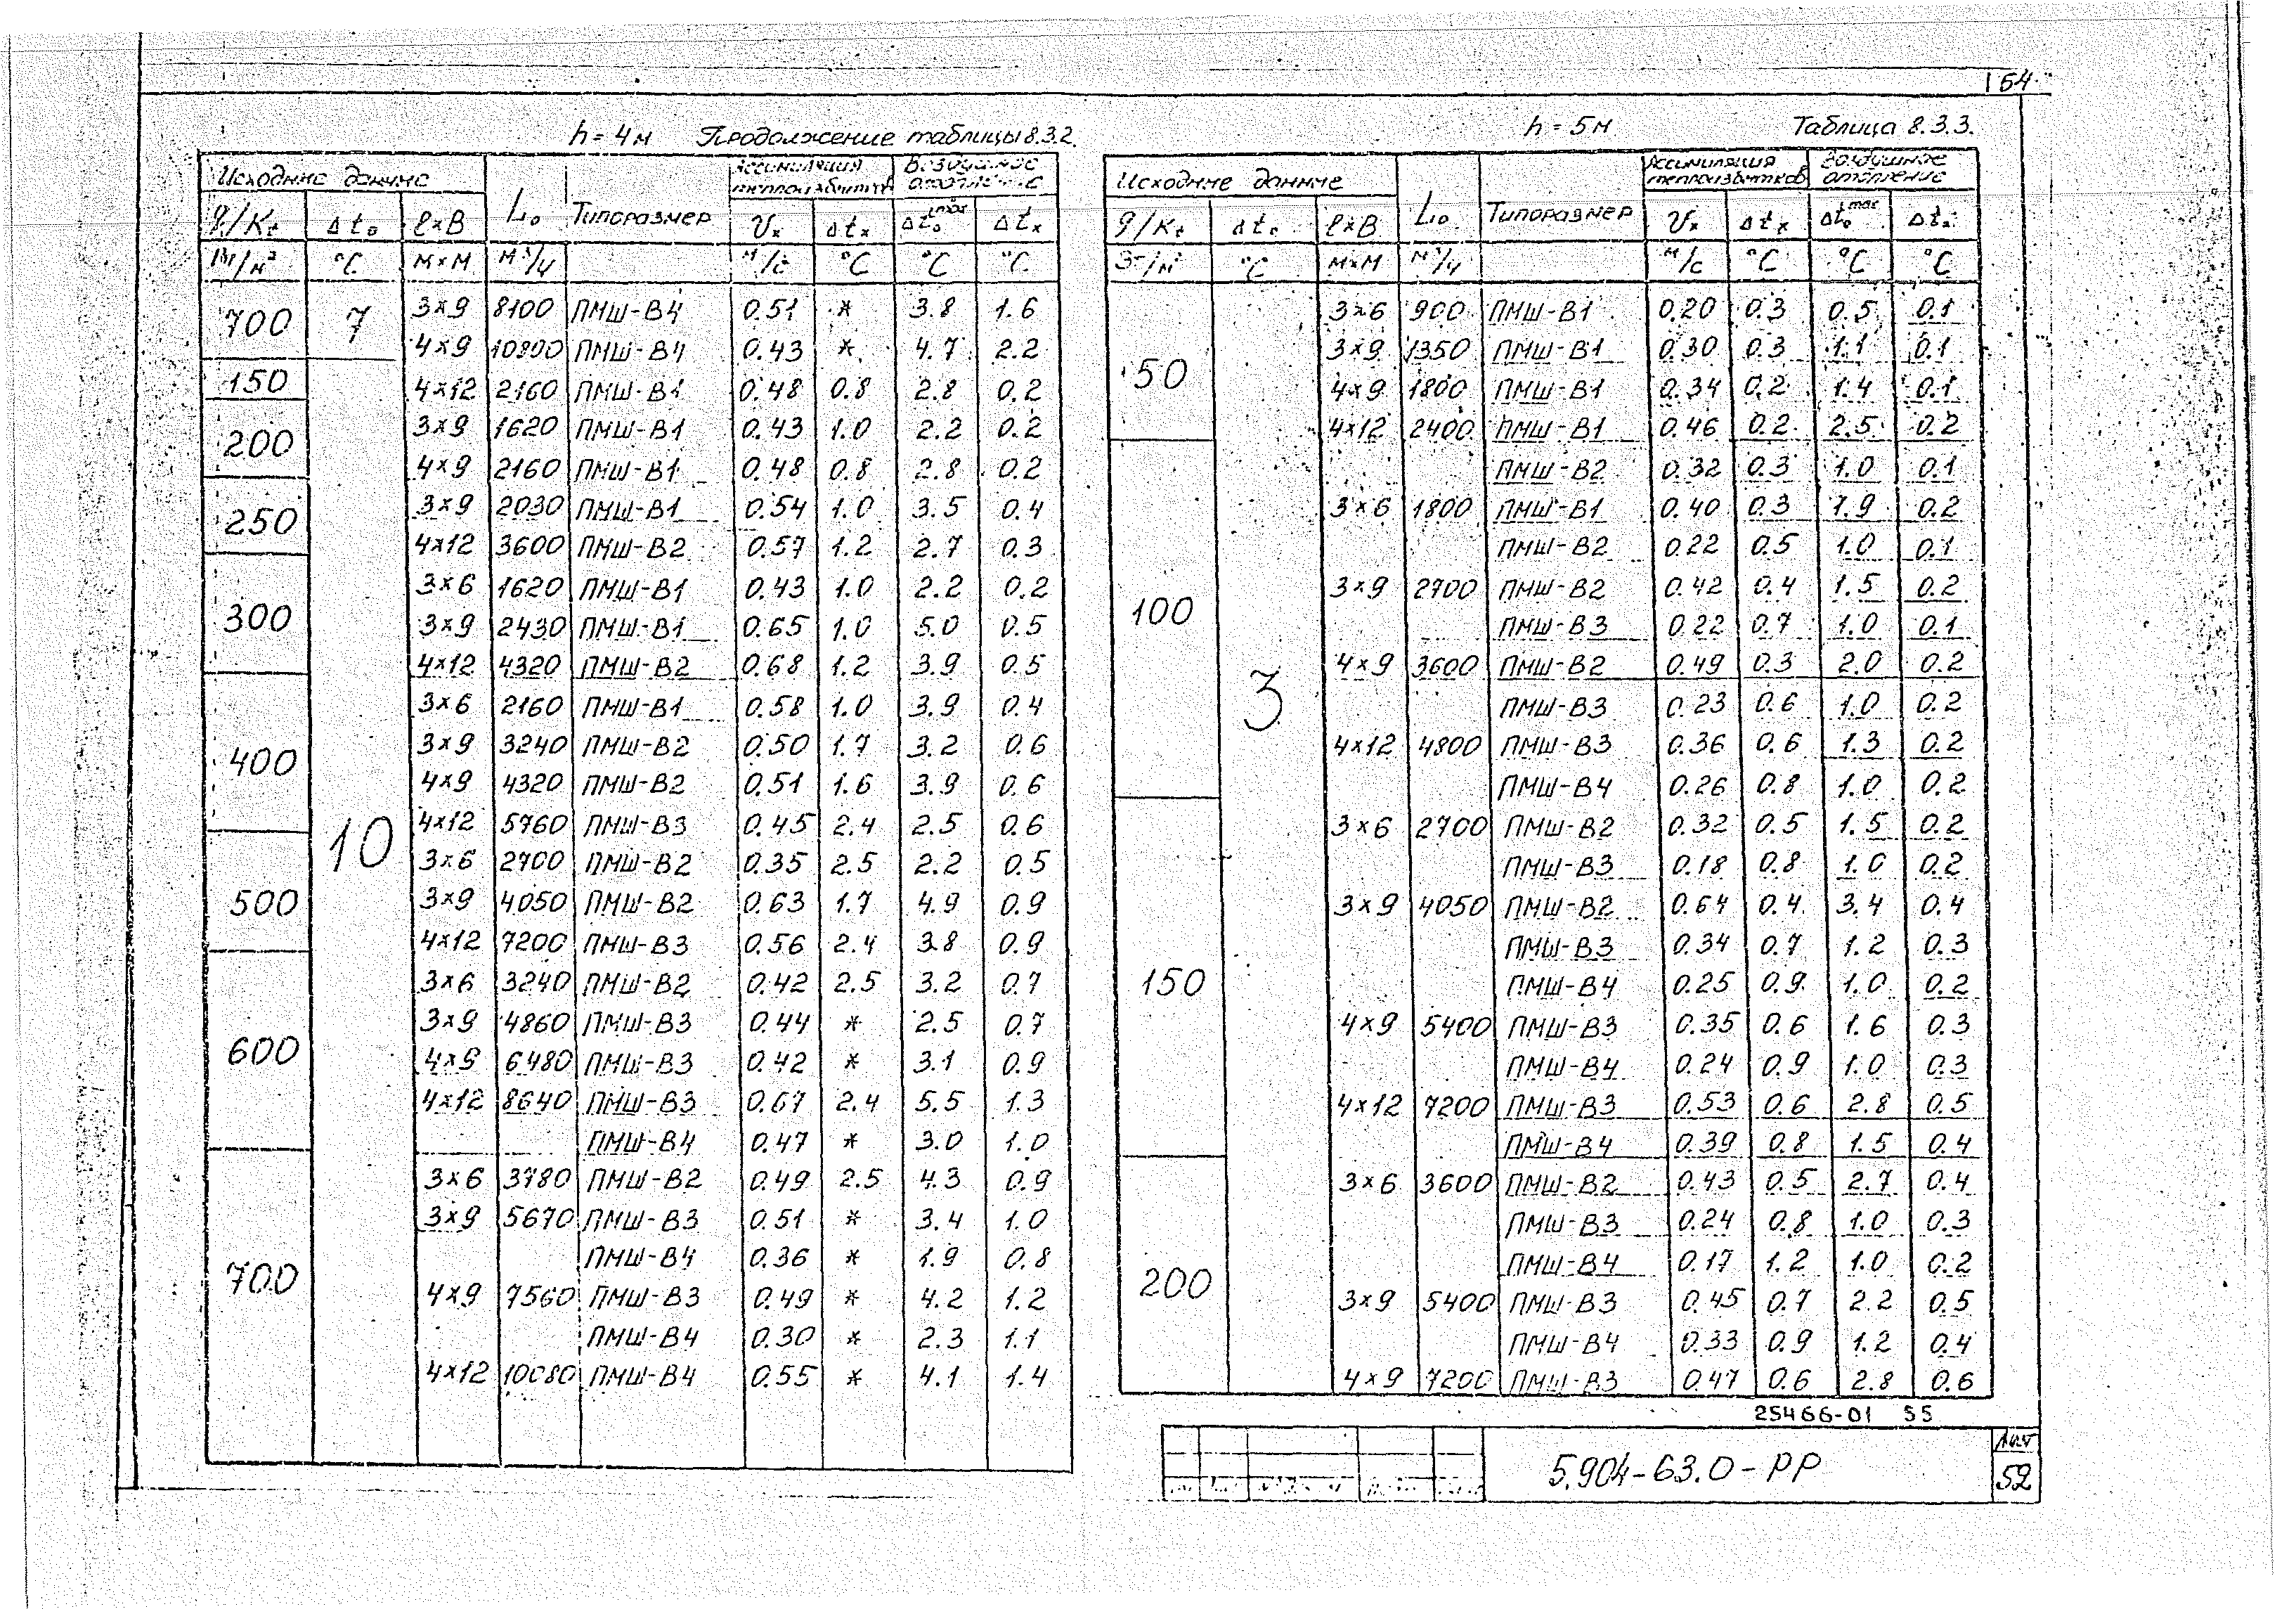 54
h = 4м Продолжение таблицы 8.3.2.
Исходные данные L₀ Типоразмер Ассимиляция теплоизбытков Воздушное отопление
q/Kt Δt₀ ℓ×B Vx Δtx Δt₀max Δtx
Вт/м² °C м×м м³/ч м/с °C °C °C
700 7 3×9 8100 ПМШ-В4 0.51 * 3.8 1.6
4×9 10800 ПМШ-В4 0.43 * 4.7 2.2
150 10 4×12 2160 ПМШ-В1 0.48 0.8 2.8 0.2
200 3×9 1620 ПМШ-В1 0.43 1.0 2.2 0.2
4×9 2160 ПМШ-В1 0.48 0.8 2.8 0.2
250 3×9 2030 ПМШ-В1 0.54 1.0 3.5 0.4
4×12 3600 ПМШ-В2 0.57 1.2 2.7 0.3
300 3×6 1620 ПМШ-В1 0.43 1.0 2.2 0.2
3×9 2430 ПМШ-В1 0.65 1.0 5.0 0.5
4×12 4320 ПМШ-В2 0.68 1.2 3.9 0.5
400 3×6 2160 ПМШ-В1 0.58 1.0 3.9 0.4
3×9 3240 ПМШ-В2 0.50 1.7 3.2 0.6
4×9 4320 ПМШ-В2 0.51 1.6 3.9 0.6
4×12 5760 ПМШ-В3 0.45 2.4 2.5 0.6
500 3×6 2700 ПМШ-В2 0.35 2.5 2.2 0.5
3×9 4050 ПМШ-В2 0.63 1.7 4.9 0.9
4×12 7200 ПМШ-В3 0.56 2.4 3.8 0.9
600 3×6 3240 ПМШ-В2 0.42 2.5 3.2 0.7
3×9 4860 ПМШ-В3 0.44 * 2.5 0.7
4×9 6480 ПМШ-В3 0.42 * 3.1 0.9
4×12 8640 ПМШ-В3 0.67 2.4 5.5 1.3
ПМШ-В4 0.47 * 3.0 1.0
700 3×6 3780 ПМШ-В2 0.49 2.5 4.3 0.9
3×9 5670 ПМШ-В3 0.51 * 3.4 1.0
ПМШ-В4 0.36 * 1.9 0.8
4×9 7560 ПМШ-В3 0.49 * 4.2 1.2
ПМШ-В4 0.30 * 2.3 1.1
4×12 10080 ПМШ-В4 0.55 * 4.1 1.4
h = 5м Таблица 8.3.3.
Исходные данные L₀ Типоразмер Ассимиляция теплоизбытков Воздушное отопление
q/Kt Δt₀ ℓ×B Vx Δtx Δt₀max Δtx
Вт/м² °C м×м м³/ч м/с °C °C °C
50 3 3×6 900 ПМШ-В1 0.20 0.3 0.5 0.1
3×9 1350 ПМШ-В1 0.30 0.3 1.1 0.1
4×9 1800 ПМШ-В1 0.34 0.2 1.4 0.1
4×12 2400 ПМШ-В1 0.46 0.2 2.5 0.2
100 ПМШ-В2 0.32 0.3 1.0 0.1
3×6 1800 ПМШ-В1 0.40 0.3 1.9 0.2
ПМШ-В2 0.22 0.5 1.0 0.1
3×9 2700 ПМШ-В2 0.42 0.4 1.5 0.2
ПМШ-В3 0.22 0.7 1.0 0.1
4×9 3600 ПМШ-В2 0.49 0.3 2.0 0.2
ПМШ-В3 0.23 0.6 1.0 0.2
4×12 4800 ПМШ-В3 0.36 0.6 1.3 0.2
ПМШ-В4 0.26 0.8 1.0 0.2
150 3×6 2700 ПМШ-В2 0.32 0.5 1.5 0.2
ПМШ-В3 0.18 0.8 1.0 0.2
3×9 4050 ПМШ-В2 0.64 0.4 3.4 0.4
ПМШ-В3 0.34 0.7 1.2 0.3
ПМШ-В4 0.25 0.9 1.0 0.2
4×9 5400 ПМШ-В3 0.35 0.6 1.6 0.3
ПМШ-В4 0.24 0.9 1.0 0.3
4×12 7200 ПМШ-В3 0.53 0.6 2.8 0.5
ПМШ-В4 0.39 0.8 1.5 0.4
200 3×6 3600 ПМШ-В2 0.43 0.5 2.7 0.4
ПМШ-В3 0.24 0.8 1.0 0.3
ПМШ-В4 0.17 1.2 1.0 0.2
3×9 5400 ПМШ-В3 0.45 0.7 2.2 0.5
ПМШ-В4 0.33 0.9 1.2 0.4
4×9 7200 ПМШ-В3 0.47 0.6 2.8 0.6
25466-01 55
5.904-63.0-РР
Лист
52